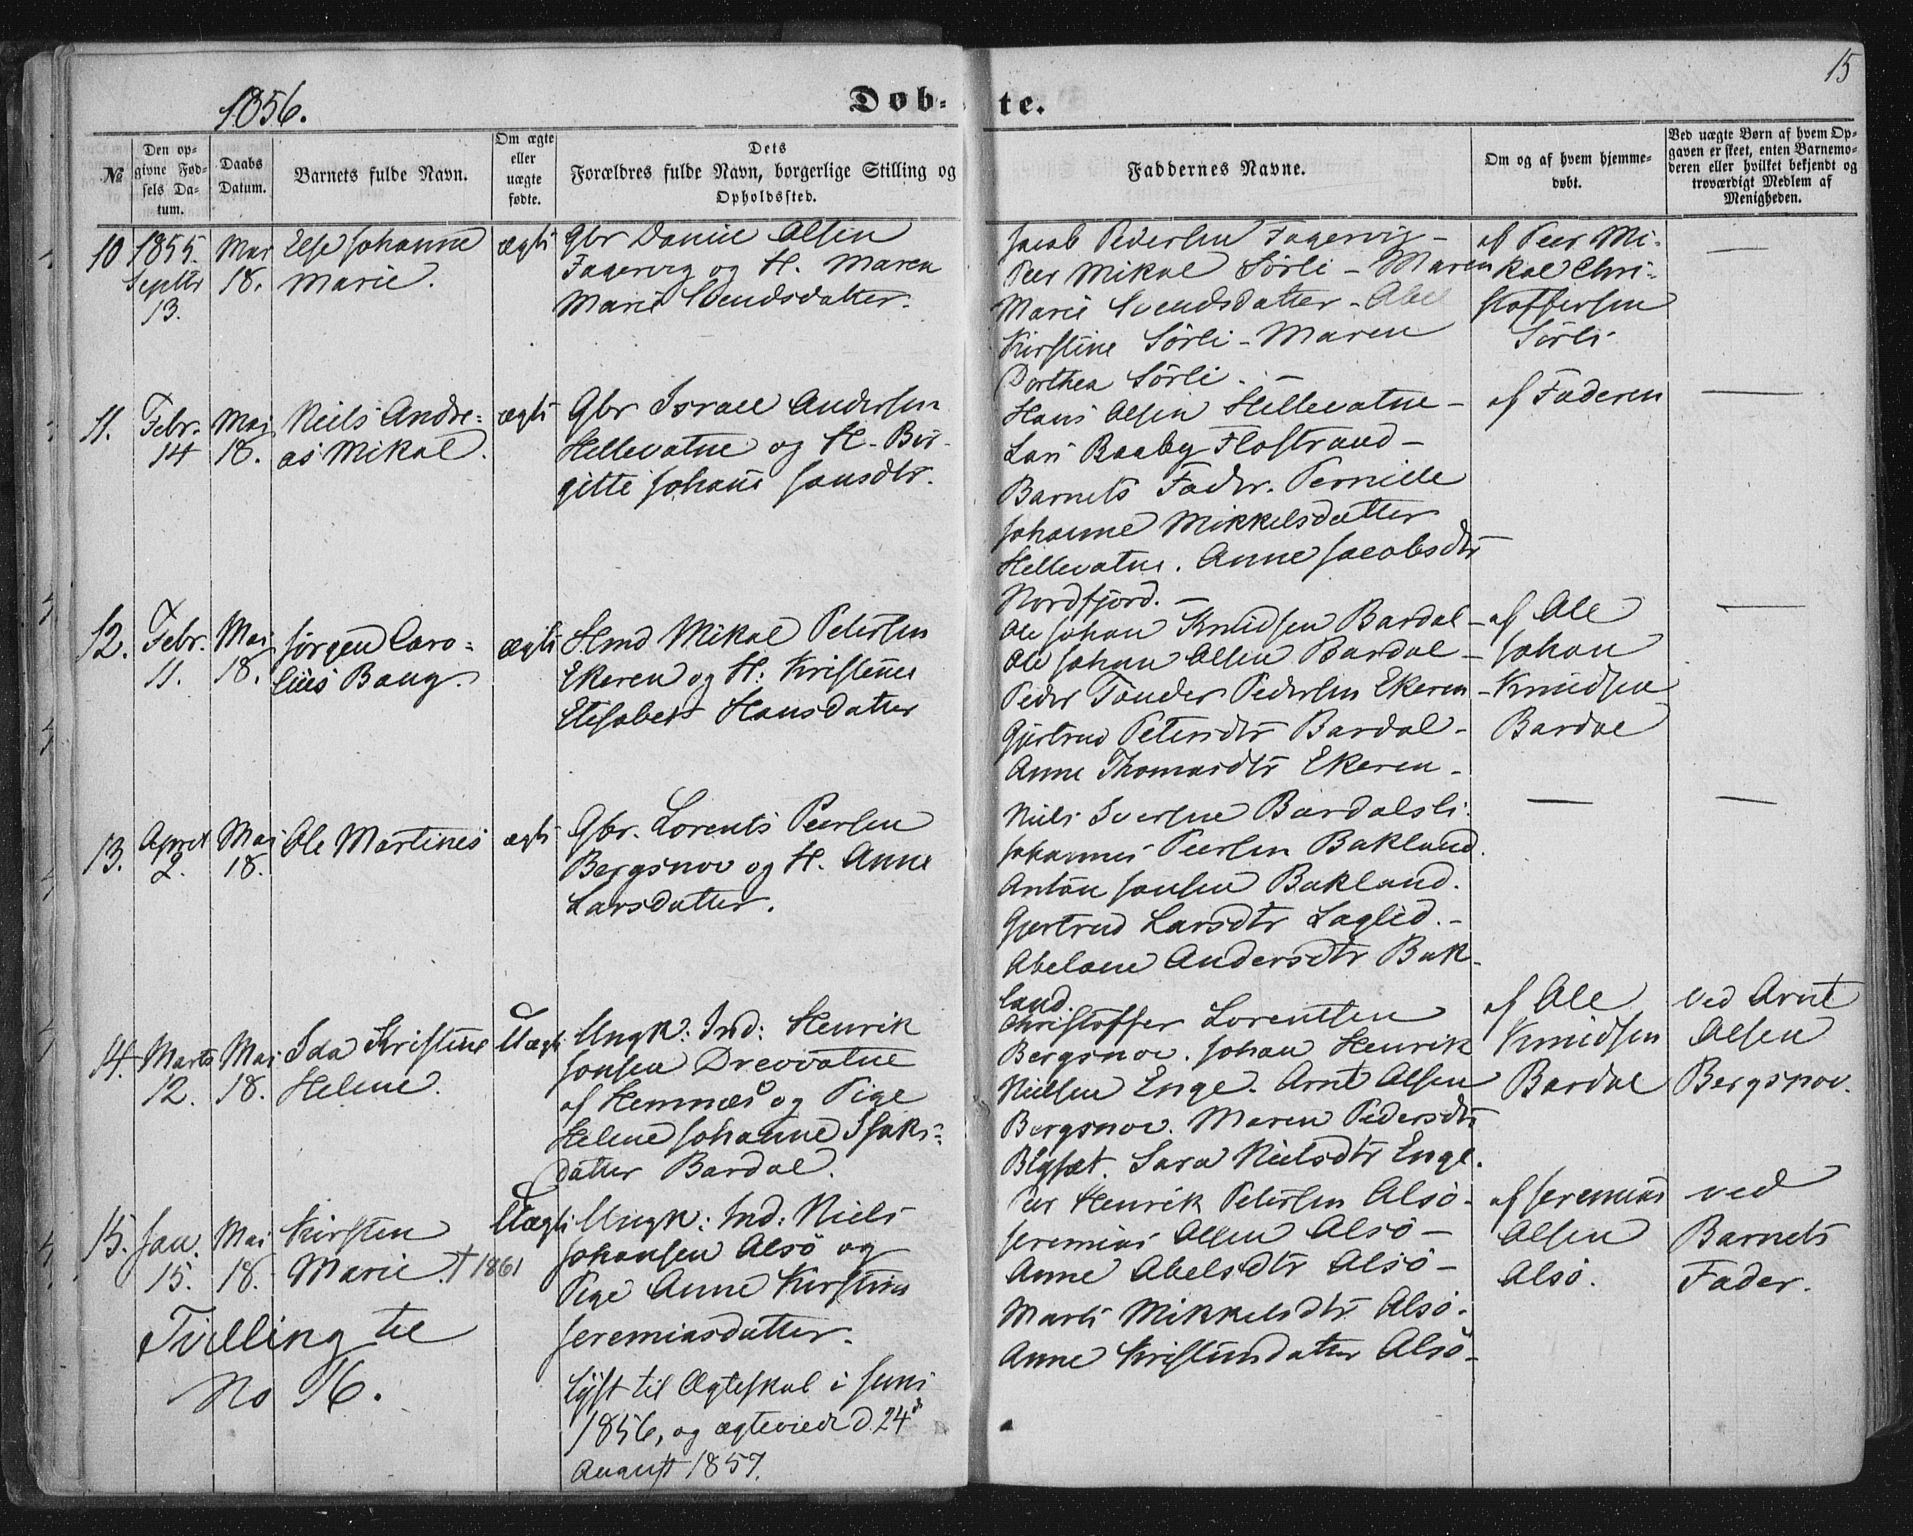 15
1856.
Døb-
te.
№
Den opgivne Fødsels Datum.
Daabs Datum.
Barnets fulde Navn.
Om ægte eller uægte fødte.
Dets
Forældres fulde Navn, borgerlige Stilling og
Opholdssted.
Faddernes Navne.
Om og af hvem hjemme-
døbt.
Ved uægte Børn af hvem Op-
gaven er skeet, enten Barnemo-
deren eller hvilket bekjendt og
troværdigt Medlem af
Menigheden.
10
1855.
Septbr
13.
Mai
18.
Else Johanne
Marie.
ægte
Gbr Daniel Olsen
Fagervig og H. Maren
Marie Svendsdatter.
Jacob Pedersen Fagervig -
Peer Mikal Sørli - Maren
Marie Svendsdatter - Abel
Kirstine Sørli - Maren
Dorthea Sørli. -
af Peer Mi-
kal Chri-
stoffersen
Sørli
—
11.
Febr.
14
Mai
18.
Niels Andre-
as Mikal.
ægte
Gbr Israel Andersen
Hellevatne og H. Bir-
gitte Johane Jonsdtr.
Hans Olsen Hellevatne -
Lars Baaby Flostrand -
Barnets Fader. Pernille
Johanne Mikkelsdatter
Hellevatne. Anne Jacobsdtr
Nordfjord. -
af Faderen
—
12.
Febr.
11.
Mai
18.
Jørgen Caro-
lius Bang.
ægte
Hmd Mikal Petersen
Ekeren og H: Kristine
Elisabet Hansdatter
Ole Johan Knudsen Bardal -
Ole Johan Olsen Bardal -
Peder Tønder Pedersen Ekeren -
Gjertrud Petersdtr Bardal -
Anne Thomasdtr Ekeren -
af Ole
Johan
Knudsen
Bardal
—
13.
April
2.
Mai
18.
Ole Martines
ægte
Gbr. Lorents Peersen
Bergsnov og H. Anne
Larsdatter.
Niels Iversen Bardalsli.
Johannes Peersen Bakland.
Anton Jonsen Bakland.
Gjertrud Larsdtr Laglid. -
Abelone Andersdtr Bak-
land.
—
—
14.
Marts
12.
Mai
18.
Ida Kristine
Helene.
Uægte
Ungk: Ind: Henrik
Jonsen Drevvatne
af Hemnæs og Pige
Helene Johanne Isaks-
datter Bardal.
Christoffer Lorentsen
Bergsnov. Johan Henrik
Nielsen Enge. Arnt Olsen
Bergsnov. Maren Pedersdtr
Sara Nielsdtr Enge.
af Ole
Knudsen
Bardal
ved Arnt
Olsen
Bergsnov.
15.
Jan.
15.
Mai
18.
Kirsten
Marie. † 1861
Uægte
Ungk: Ind: Niels
Johansen Alsø og
Pige Anne Kirstine
Jeremiasdatter.
Peer Henrik Petersen Alsø.
Jeremias Olsen Alsø -
Anne Abelsdtr Alsø -
Marti Mikkelsdtr Alsø.
Anne Kristensdatter Alsø -
af Jeremias
Olsen
Alsø.
ved
Barnets
Fader.
Tvilling til
No 16.
Lyst til Ægteskab i Juni
1856, og ægteviede d. 24de
August 1857.